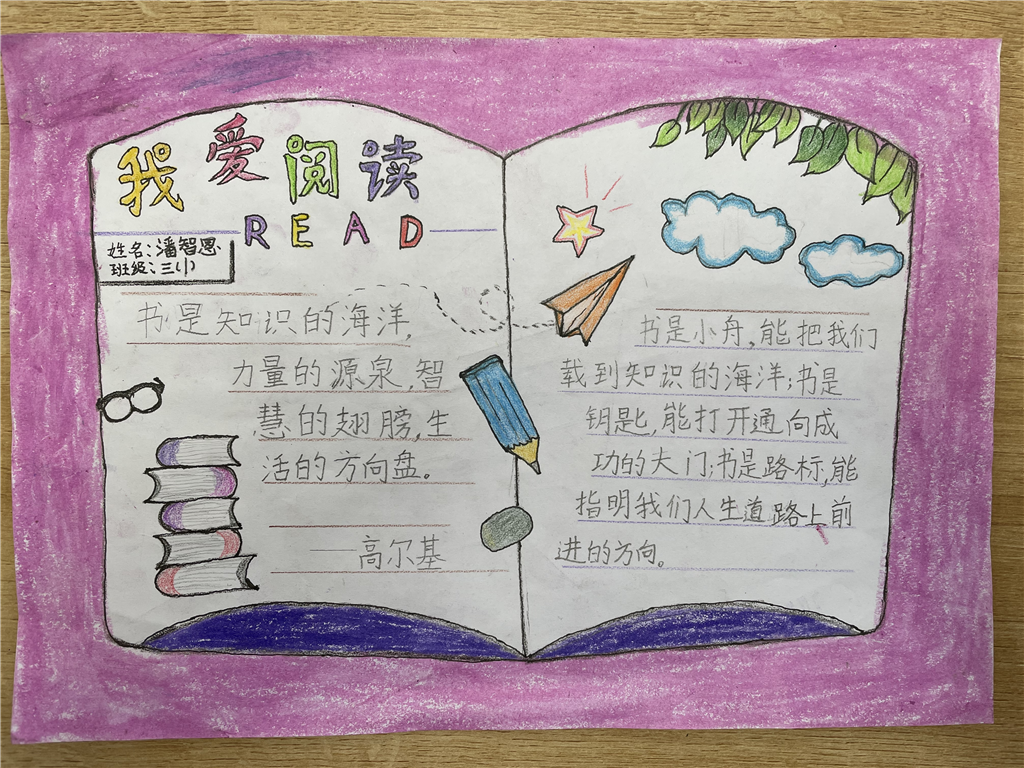 我爱阅读
READ
姓名:潘智思
班级:三小
书是知识的海洋,
力量的源泉,智
慧的翅膀,生
活的方向盘。
——高尔基
书是小舟,能把我们
载到知识的海洋;书是
钥匙,能打开通向成
功的大门;书是路标,能
指明我们人生道路上前
进的方向。